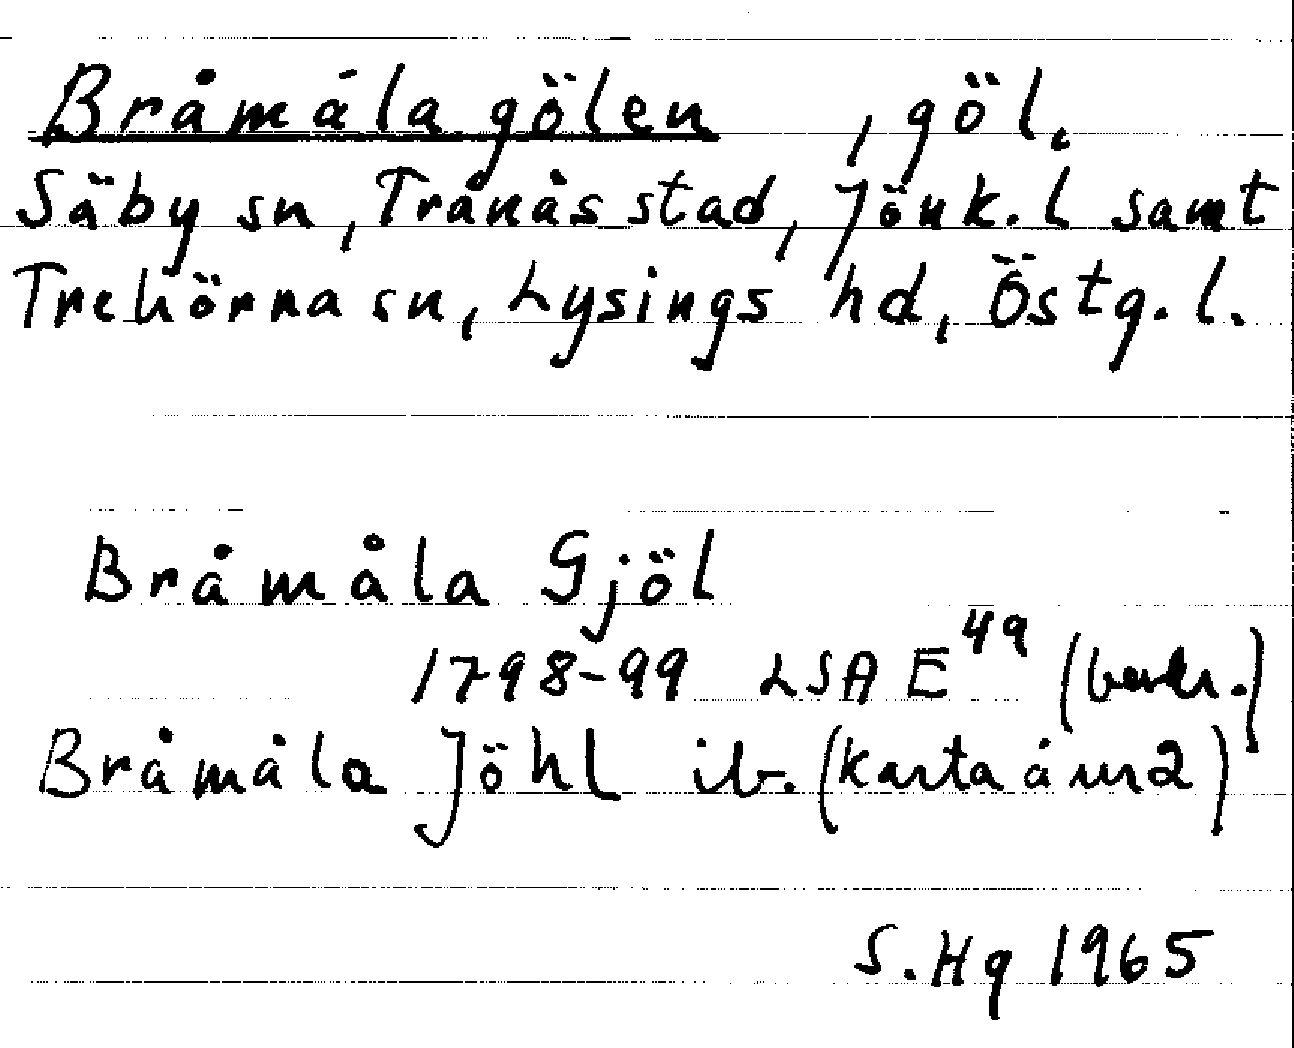 Bråmåla gölen, göl.
Säby sn, Tranås stad, Jönk. l samt
Trehörna sn, Lysings hd, Östg. l.
Bråmåla Gjöl
1798-99 LSA E 49 (beskr.)
Bråmåla Jöhl ib. (karta å nr 2)
S. Hg 1965